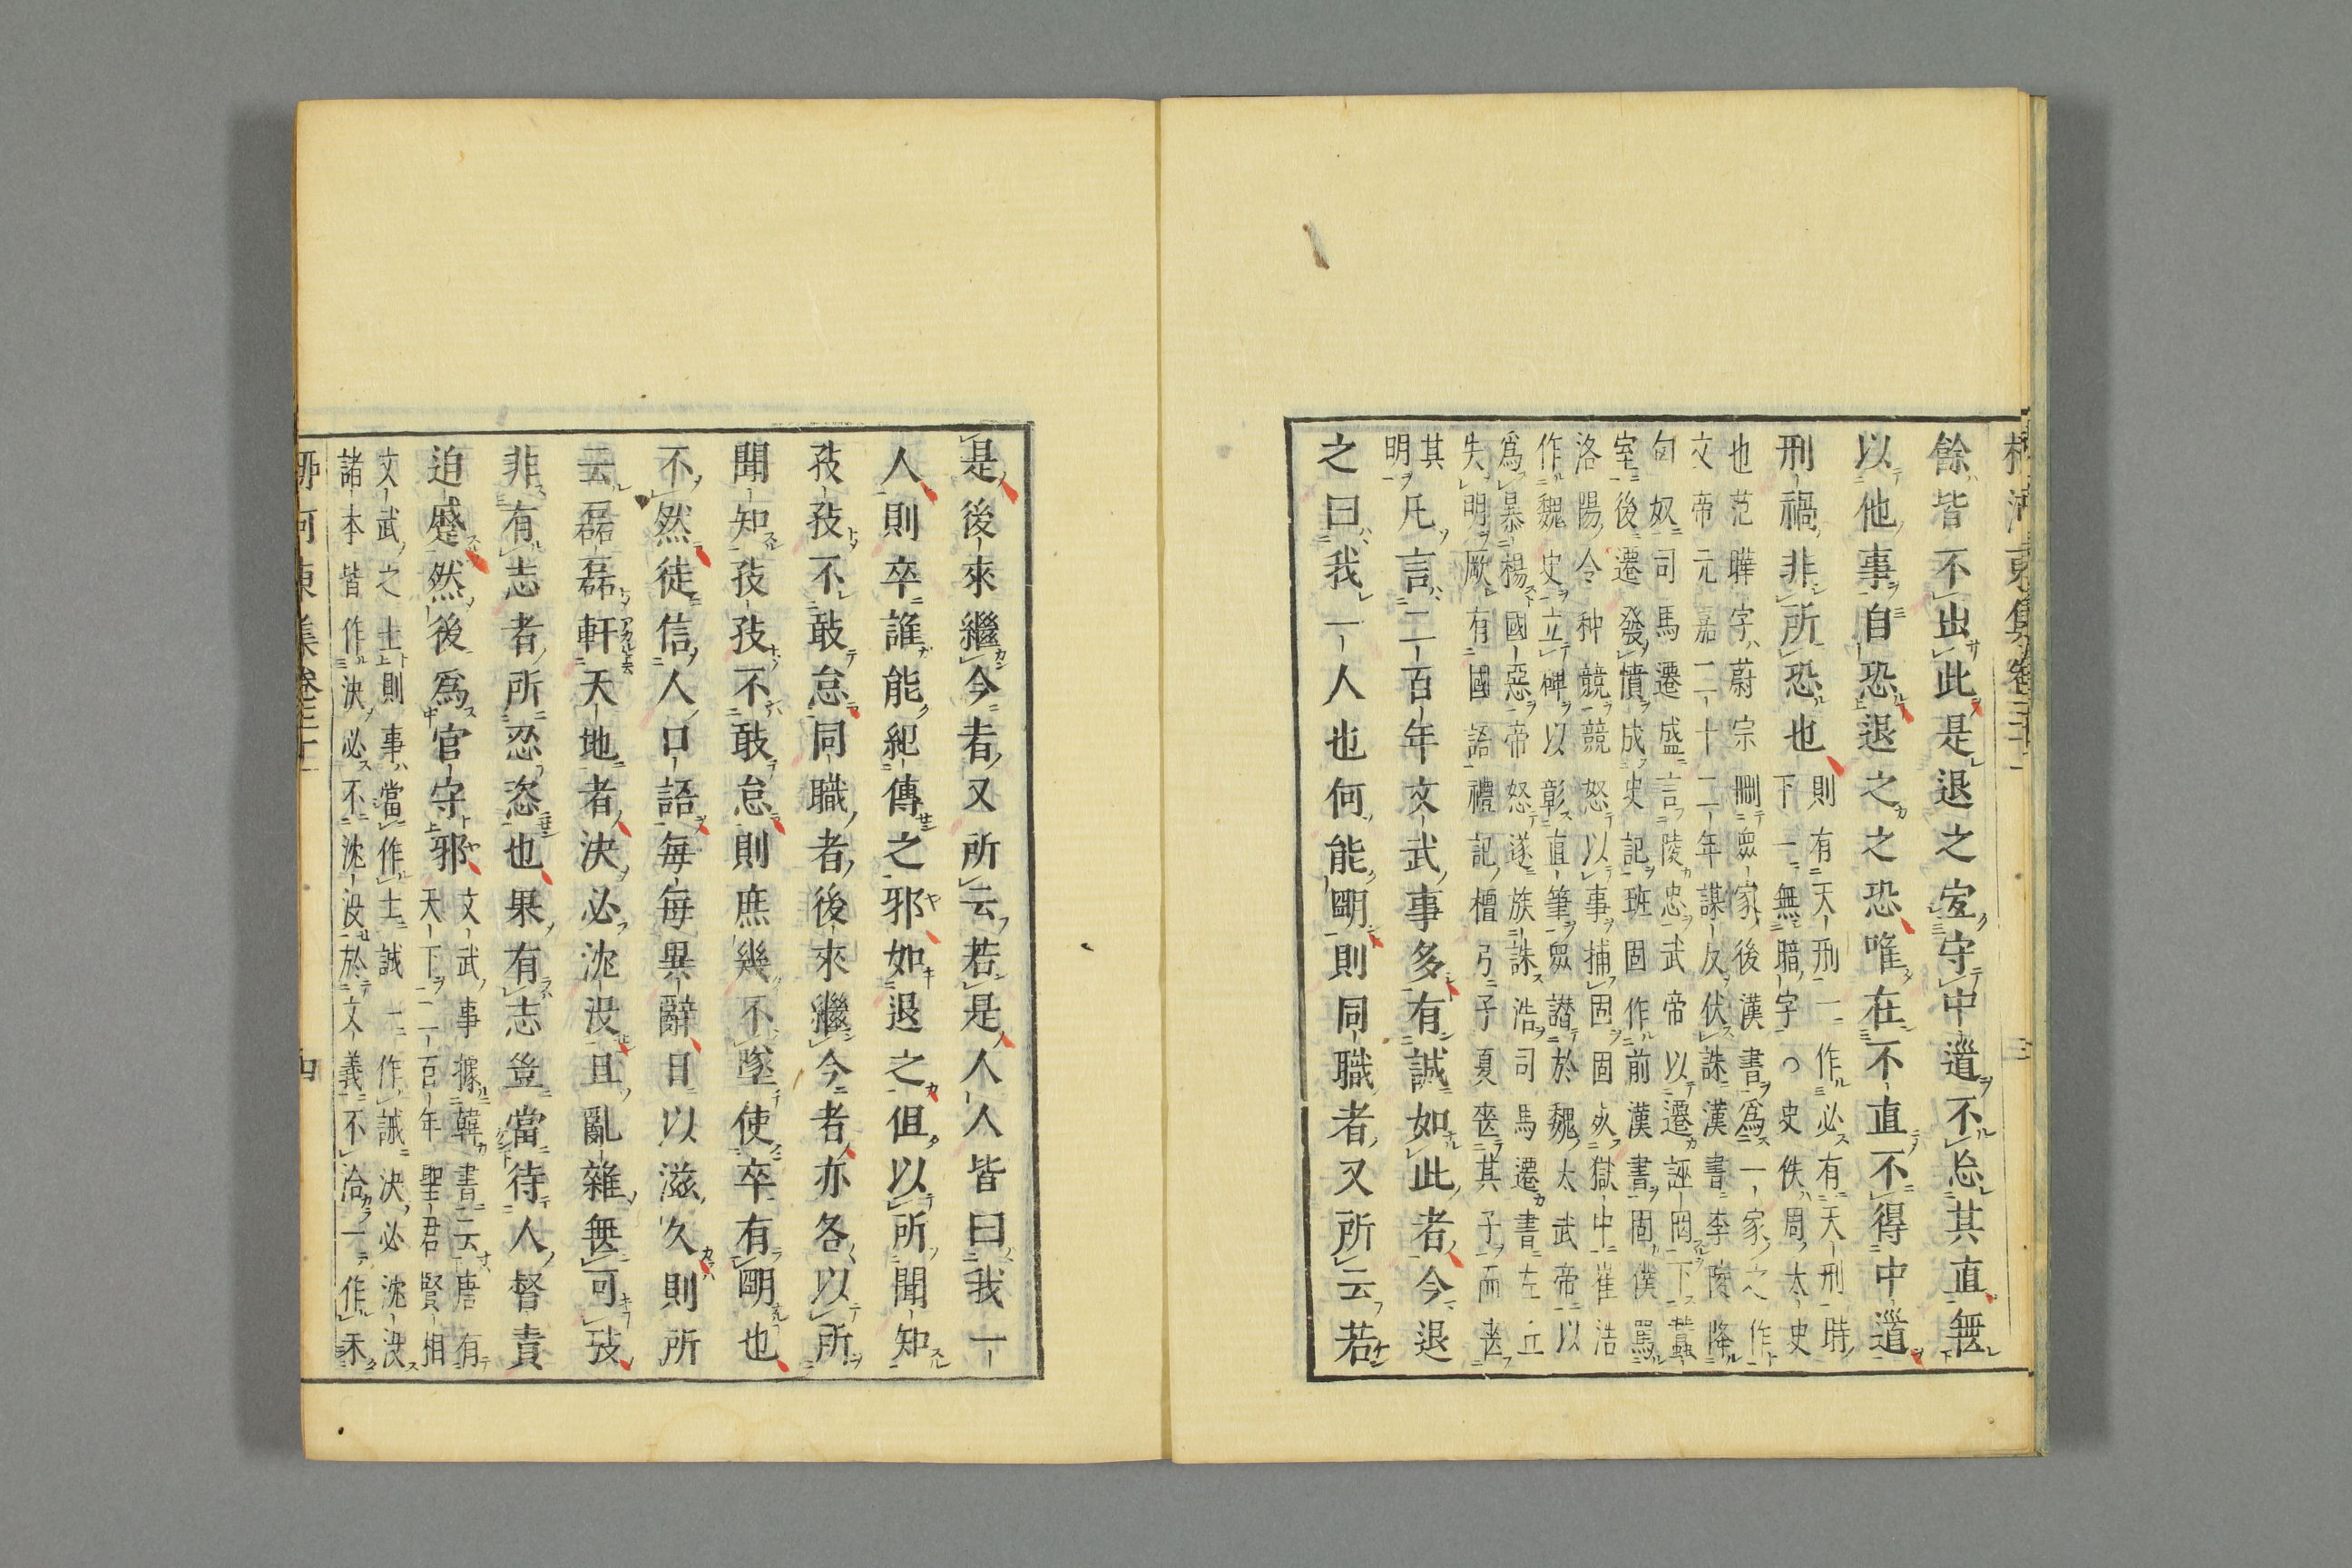 餘皆不出此是退之宜守中道不忘其直無
以他事自恐退之之恐唯在不直不得中道
刑禍非所恐也
則有天刑一作必有天刑時
下一無暗字〇史佚周太史
也范曄字蔚宗刪衆家後漢書爲一家之作
文帝元嘉二十二年謀反伏誅漢書李陵降
匈奴司馬遷盛言陵忠武帝以遷誣罔下蠶
室後遷發憤成史記班固作前漢書固僕罵
洛陽令种競競怒以事捕固固死獄中崔浩
作魏史立碑以彰直筆衆譖於魏太武帝以
爲暴楊國惡帝怒遂族誅浩司馬遷書左丘
失明厥有國語禮記檀弓子夏喪其子而喪
其
明
凡言二百年文武事多有誠如此者今退
之曰我一人也何能明則同職者又所云若
是後來繼今者又所云若是人人皆曰我一
人則卒誰能紀傳之邪如退之但以所聞知
孜孜不敢怠同職者後來繼今者亦各以所
聞知孜孜不敢怠則庶幾不墜使卒有明也
不然徒信人口語每每異辭日以滋久則所
云磊磊軒天地者決必沈没且亂雜無可攷
非有志者所忍恣也果有志豈當待人督責
迫蹙然後爲官守邪
文武事據韓書云唐有
天下二百年聖君賢相
文武之士則事當作士誠一作誡決必沈没
諸本皆作決必不沈没於文義不洽一作未